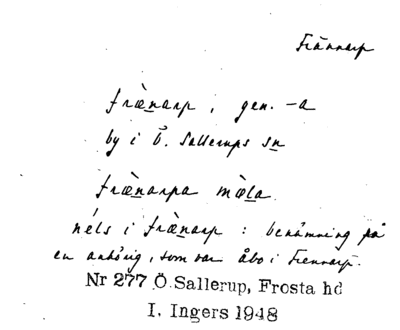 Frännarp
fræ̀narp, gen. -a
by i Ö. Sallerups sn
fræ̀narpa mø̀la
néls i fræ̀narp : benämning på
en anhörig, som var åbo i Frennarp.
Nr 277 Ö. Sallerup, Frosta hd
I. Ingers 1948